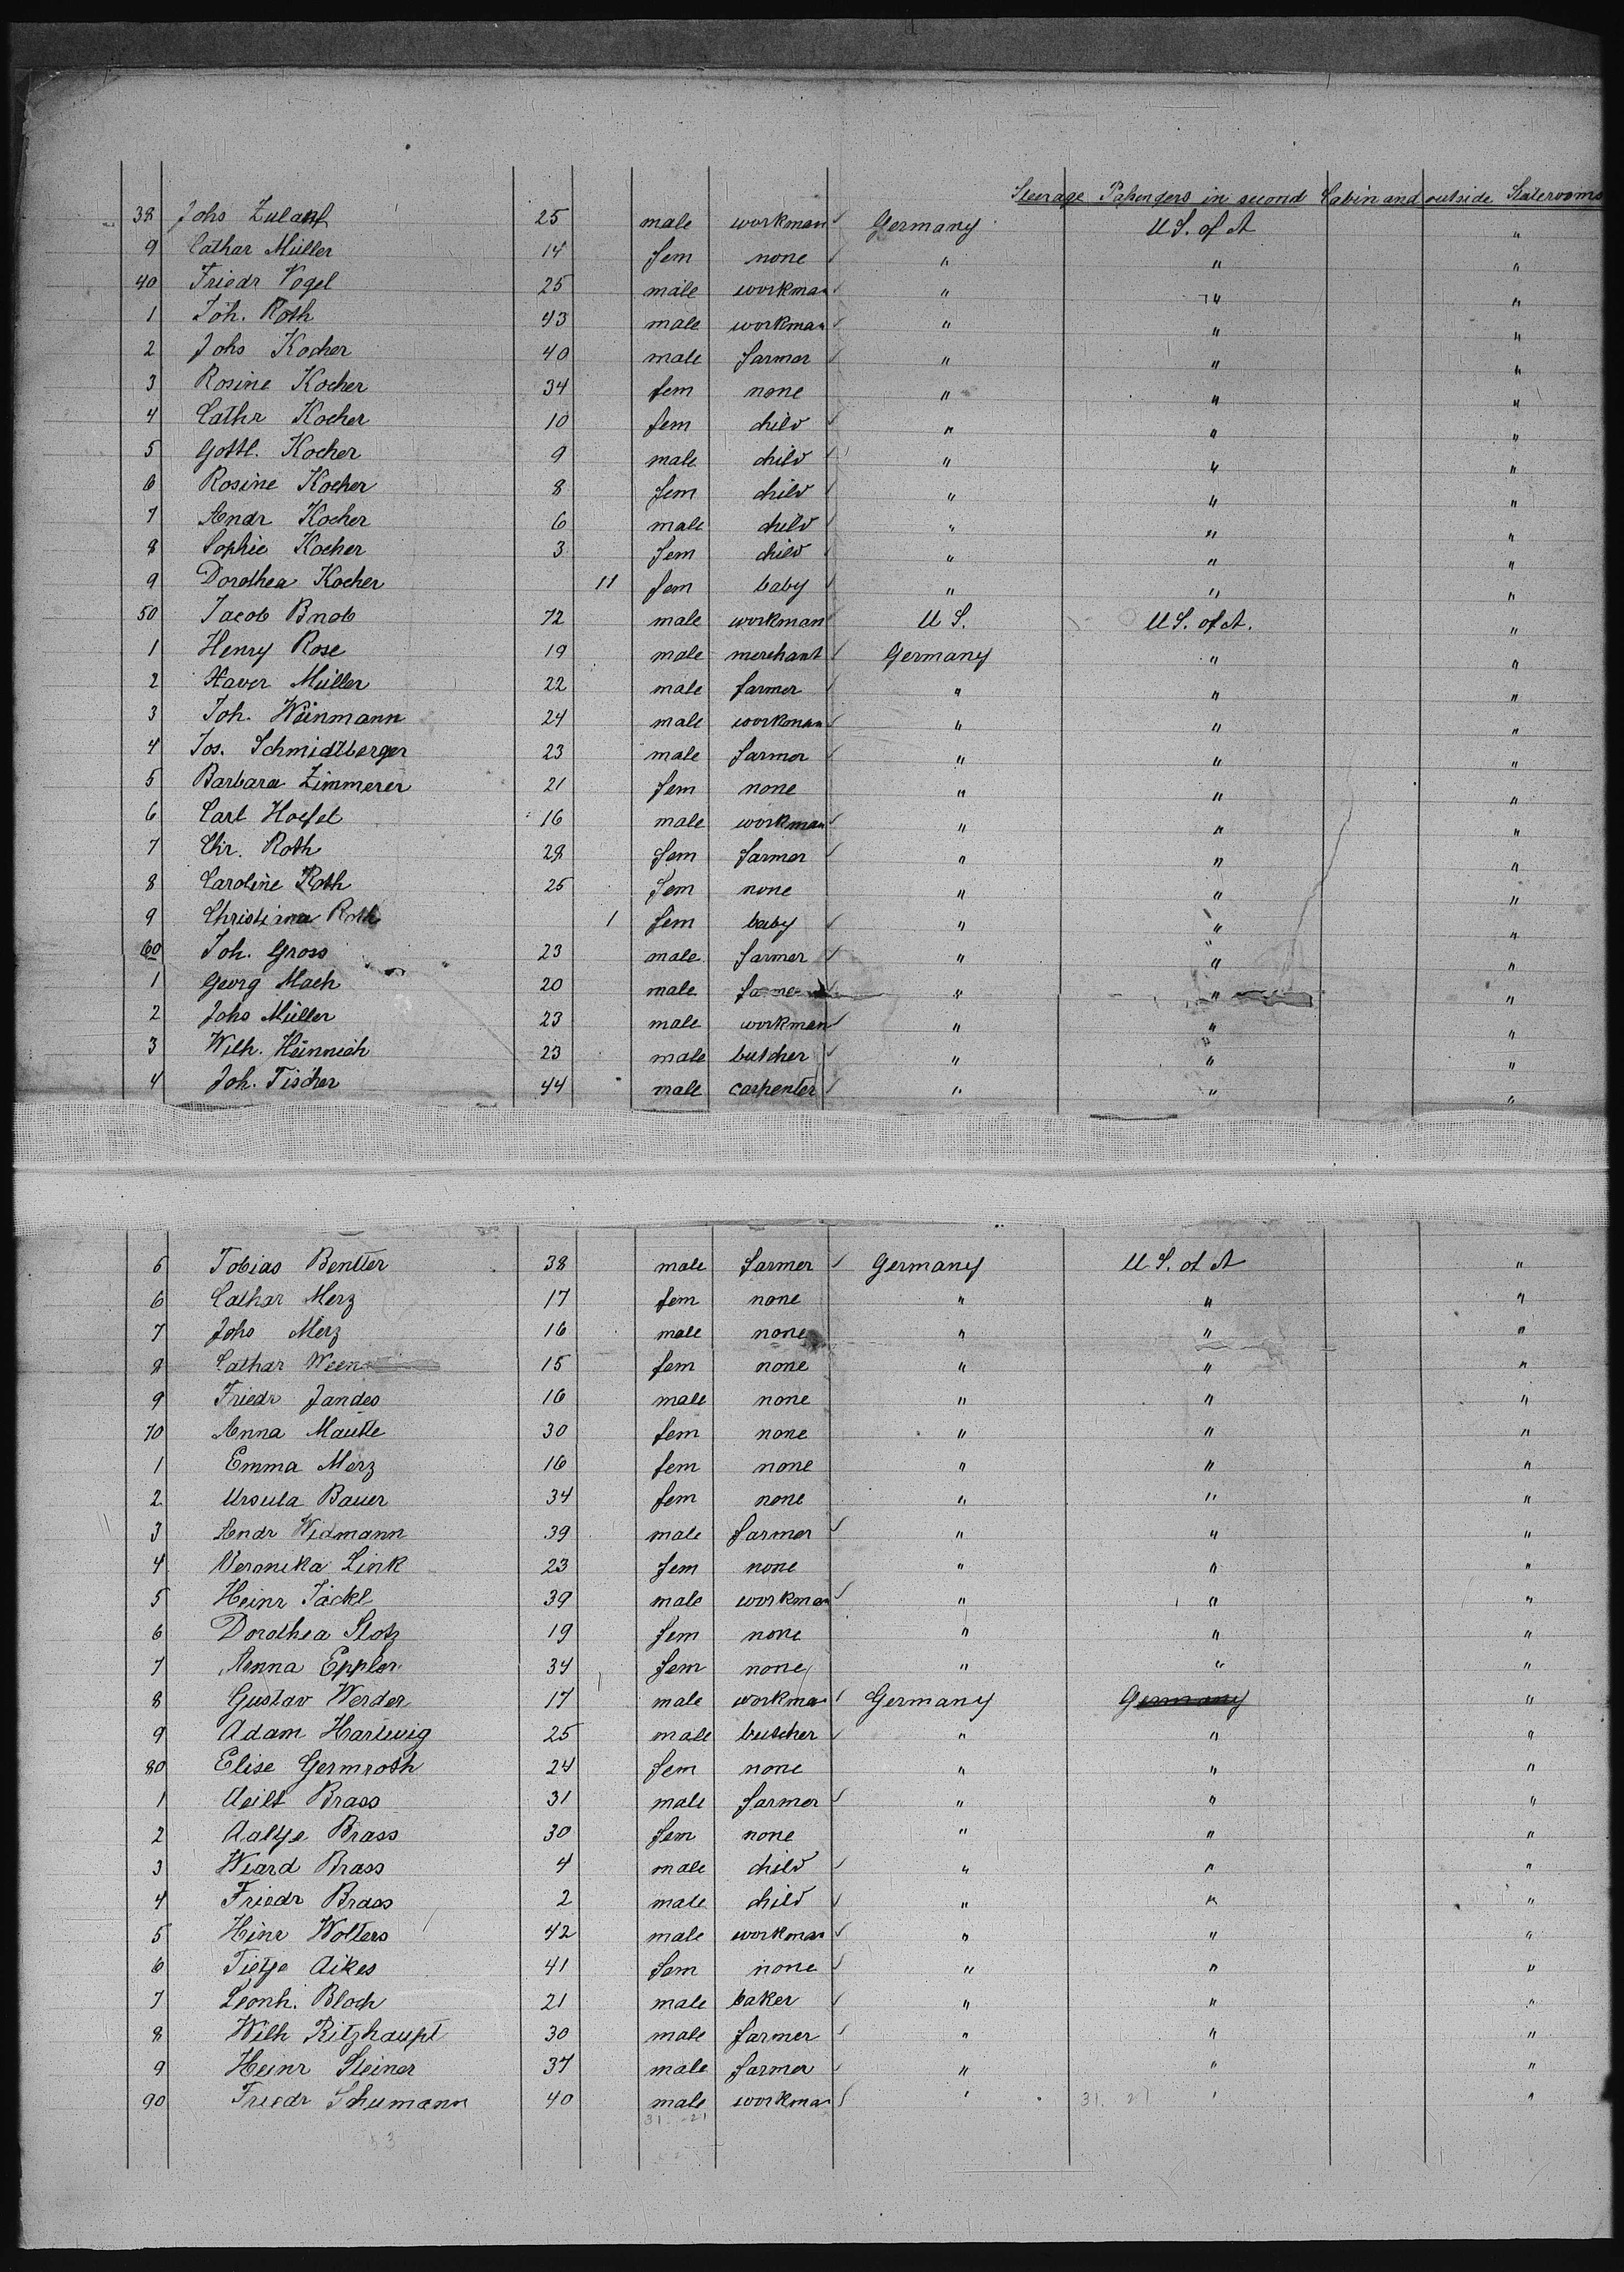 Steerage Passengers in second Cabin and outside Staterooms
38 Johs Zulauf 25 male workman Germany U S. of A "
9 Cathar Müller 14 fem none " " "
40 Friedr Vogel 25 male workman " " "
1 Joh. Roth 43 male workman " " "
2 Johs Kocher 40 male farmer " " "
3 Rosine Kocher 34 fem none " " "
4 Cathr Kocher 10 fem child " " "
5 Gottl. Kocher 9 male child " " "
6 Rosine Kocher 8 fem child " " "
7 Andr Kocher 6 male child " " "
8 Sophie Kocher 3 fem child " " "
9 Dorothea Kocher 11 fem baby " " "
50 Jacob Bnob 72 male workman U S. U S. of A. "
1 Henry Rose 19 male merchant Germany " "
2 Xaver Müller 22 male farmer " " "
3 Joh. Weinmann 24 male workman " " "
4 Jos. Schmidtberger 23 male farmer " " "
5 Barbara Zimmerer 21 fem none " " "
6 Carl Hoefel 16 male workman " " "
7 Chr. Roth 28 fem farmer " " "
8 Caroline Roth 25 fem none " " "
9 Christina Roth 1 fem baby " " "
60 Joh. Gross 23 male farmer " " "
1 Georg Mach 20 male farmer " " "
2 Johs Müller 23 male workman " " "
3 Wilh. Heinrich 23 male butcher " " "
4 Joh. Fischer 44 male carpenter " " "
5 Tobias Bentter 38 male farmer Germany U S. of A "
6 Cathar Merz 17 fem none " " "
7 Johs Merz 16 male none " " "
8 Cathar 15 fem none " " "
9 Friedr Jandes 16 male none " " "
70 Anna Mautle 30 fem none " " "
1 Emma Merz 16 fem none " " "
2 Ursula Bauer 34 fem none " " "
3 Andr Widmann 39 male farmer " " "
4 Veronika Link 23 fem none " " "
5 Heinr Jäckl 39 male workman " " "
6 Dorothea Stotz 19 fem none " " "
7 Anna Eppler 34 fem none " " "
8 Gustav Werder 17 male workman Germany Germany "
9 Adam Hartwig 25 male butcher " " "
80 Elise Germroth 24 fem none " " "
1 Aeilt Brass 31 male farmer " " "
2 Aaltje Brass 30 fem none " " "
3 Weard Brass 4 male child " " "
4 Friedr Brass 2 male child " " "
5 Hinr Wolters 42 male workman " " "
6 Tietje Aikes 41 fem none " " "
7 Leonh. Bloch 21 male baker " " "
8 Wilh Ritzhaupt 30 male farmer " " "
9 Heinr Steiner 37 male farmer " " "
90 Friedr Schumann 40 male workman " " "
31. 21
31. 21
53